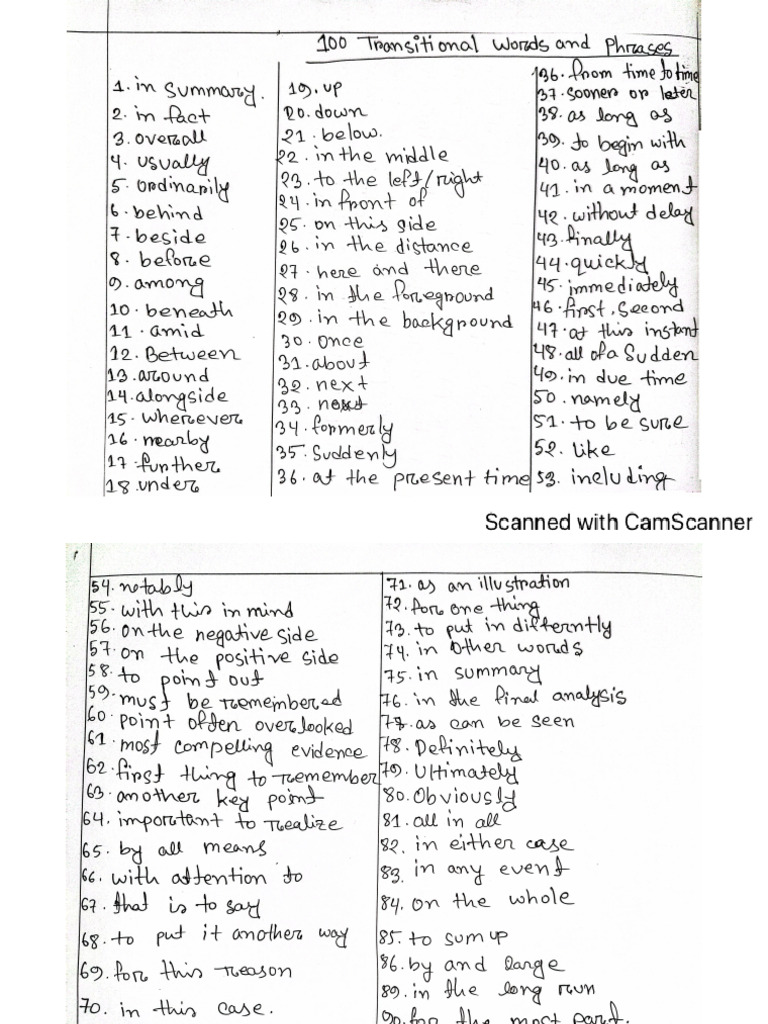 100 Transitional words and phrases
1. in summary.
2. in fact
3. overall
4. usually
5. ordinarily
6. behind
7. beside
8. before
9. among
10. beneath
11. amid
12. Between
13. around
14. alongside
15. wherever
16. nearby
17. further
18. under
19. up
20. down
21. below.
22. in the middle
23. to the left/right
24. in front of
25. on this side
26. in the distance
27. here and there
28. in the foreground
29. in the background
30. once
31. about
32. next
33. next
34. formerly
35. Suddenly
36. at the present time
136. from time to time
37. sooner or later
38. as long as
39. to begin with
40. as long as
41. in a moment
42. without delay
43. finally
44. quickly
45. immediately
46. first, second
47. at this instant
48. all of a Sudden
49. in due time
50. namely
51. to be sure
52. like
53. including
Scanned with CamScanner
54. notably
55. with this in mind
56. on the negative side
57. on the positive side
58. to point out
59. must be remembered
60. point often overlooked
61. most compelling evidence
62. first thing to remember
63. another key point
64. important to realize
65. by all means
66. with attention to
67. that is to say
68. to put it another way
69. for this reason
70. in this case.
71. as an illustration
72. for one thing
73. to put in differntly
74. in other words
75. in summary
76. in the final analysis
77. as can be seen
78. Definitely
79. Ultimately
80. Obviously
81. all in all
82. in either case
83. in any event
84. on the whole
85. to sum up
86. by and large
89. in the long run
90. for the most part.